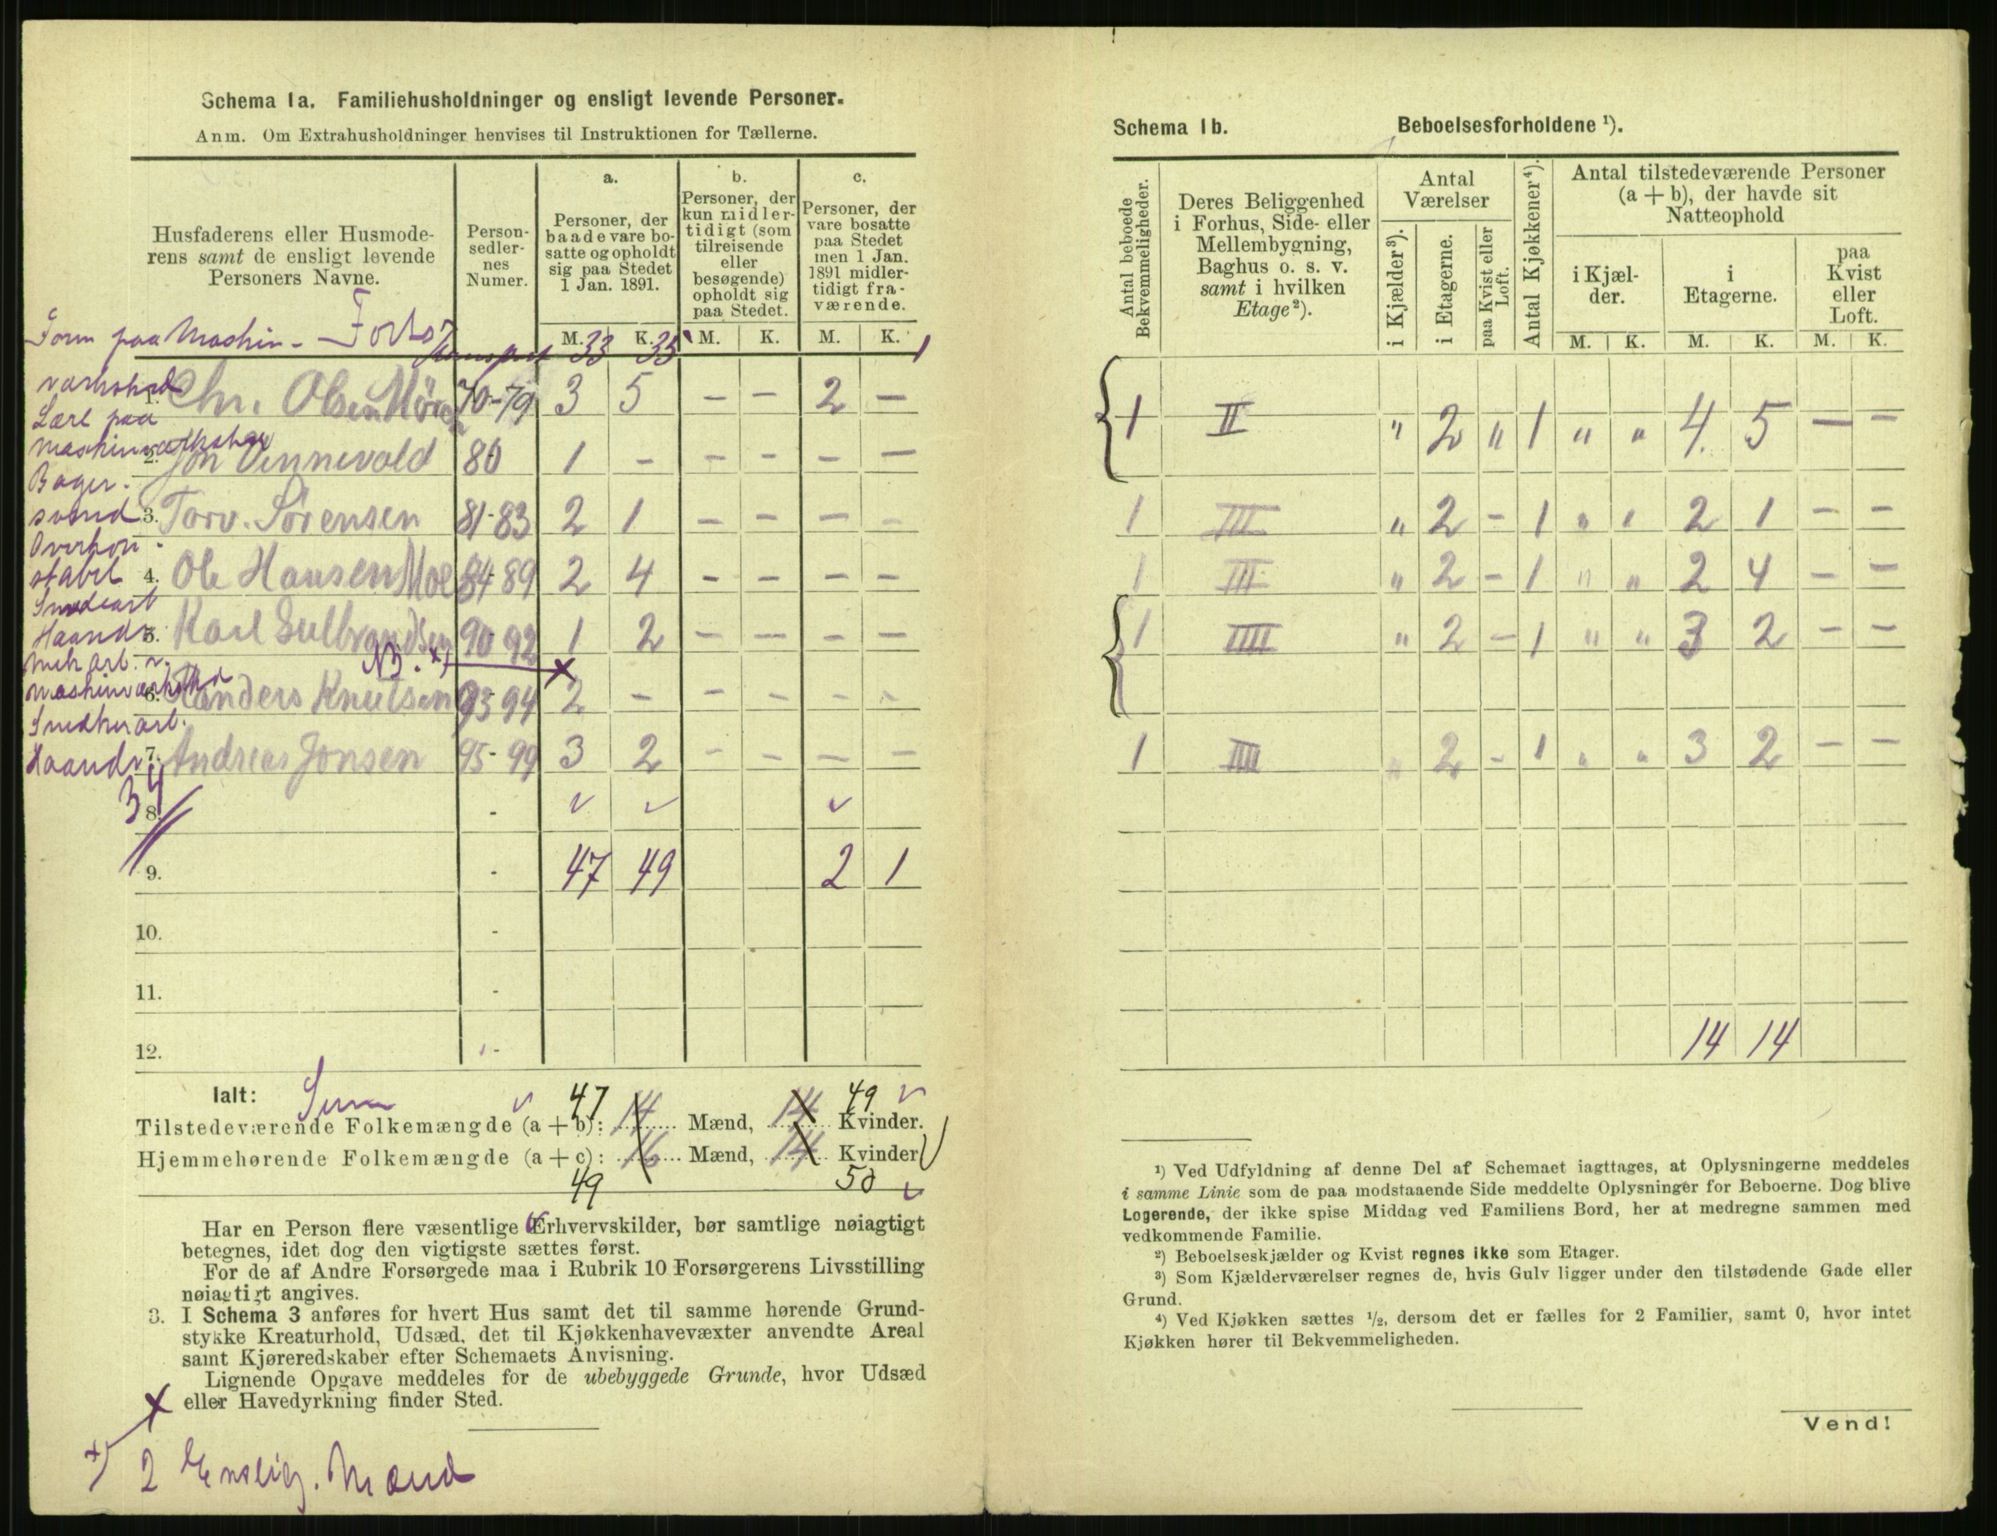 Schema 1a. Familiehusholdninger og ensligt levende Personer.
Anm. Om Extrahusholdninger henvises til Instruktionen for Tællerne.
Husfaderens eller Husmode-
rens samt de ensligt levende
Personers Navne.
Person-
sedler-
nes
Numer.
a.
Personer, der
baade vare bo-
satte og opholdt
sig paa Stedet
1 Jan. 1891.
b.
Personer, der
kun midler-
tidigt (som
tilreisende
eller
besøgende)
opholdt sig
paa Stedet.
c.
Personer, der
vare bosatte
paa Stedet
men 1 Jan.
1891 midler-
tidigt fra-
værende.
M. K. M. K. M. K.
Form paa Maskin- Forts
Transport 33 35 1
værksted
1. Chr. Olsen 70-79 3 5 – – 2 –
Lærl paa
Maskinværksted
2. Jon Vinnevold 80 1 – – – – –
Bager-
svend
3. Torv. Sörensen 81-83 2 1 – – – –
Overkon-
stabel
4. Ole Hansen Moe 84-89 2 4 – – – –
Haandv
5. Karl Gulbrandsen 90-92 1 2 – – – –
NB. x)
Mek arb. v.
Maskinværksted
6. Randers Knutsen 93 94 2 – – – – –
Snedkerarb.
Haandv
7. Andreas Jonsen 95-99 3 2 – – – –
34
8. - v v v
9. - 47 49 2 1
10. -
11. -
12. -
Ialt: Sum
47 49
Tilstedeværende Folkemængde (a + b): 14 Mænd, 14 Kvinder.
Hjemmehørende Folkemængde (a + c): 16 Mænd, 14 Kvinder
49 50
Har en Person flere væsentlige Erhvervskilder, bør samtlige nøiagtigt
betegnes, idet dog den vigtigste sættes først.
For de af Andre Forsørgede maa i Rubrik 10 Forsørgerens Livsstilling
nøiagtigt angives.
3. I Schema 3 anføres for hvert Hus samt det til samme hørende Grund-
stykke Kreaturhold, Udsæd, det til Kjøkkenhavevæxter anvendte Areal
samt Kjøreredskaber efter Schemaets Anvisning.
Lignende Opgave meddeles for de ubebyggede Grunde, hvor Udsæd
eller Havedyrkning finder Sted.
x) 2 Enslig. Mænd
Schema 1b. Beboelsesforholdene ¹).
Antal beboede
Bekvemmeligheder.
Deres Beliggenhed
i Forhus, Side- eller
Mellembygning,
Baghus o. s. v.
samt i hvilken
Etage²).
Antal
Værelser
i Kjælder³).
i Etagerne.
paa Kvist eller
Loft.
Antal Kjøkkener⁴).
Antal tilstedeværende Personer
(a + b), der havde sit
Natteophold
i Kjæl-
der.
i
Etagerne.
paa
Kvist
eller
Loft.
M. K. M. K. M. K.
1 II " 2 " 1 " " 4. 5 – –
1 III " 2 – 1 " " 2 1 – –
1 III " 2 – 1 " " 2 4 – –
1 IIII " 2 – 1 " " 3 2 – –
1 IIII " 2 – 1 " " 3 2 – –
14 14
¹) Ved Udfyldning af denne Del af Schemaet iagttages, at Oplysningerne meddeles
i samme Linie som de paa modstaaende Side meddelte Oplysninger for Beboerne. Dog blive
Logerende, der ikke spise Middag ved Familiens Bord, her at medregne sammen med
vedkommende Familie.
²) Beboelseskjælder og Kvist regnes ikke som Etager.
³) Som Kjælderværelser regnes de, hvis Gulv ligger under den tilstødende Gade eller
Grund.
⁴) Ved Kjøkken sættes ½, dersom det er fælles for 2 Familier, samt 0, hvor intet
Kjøkken hører til Bekvemmeligheden.
Vend!